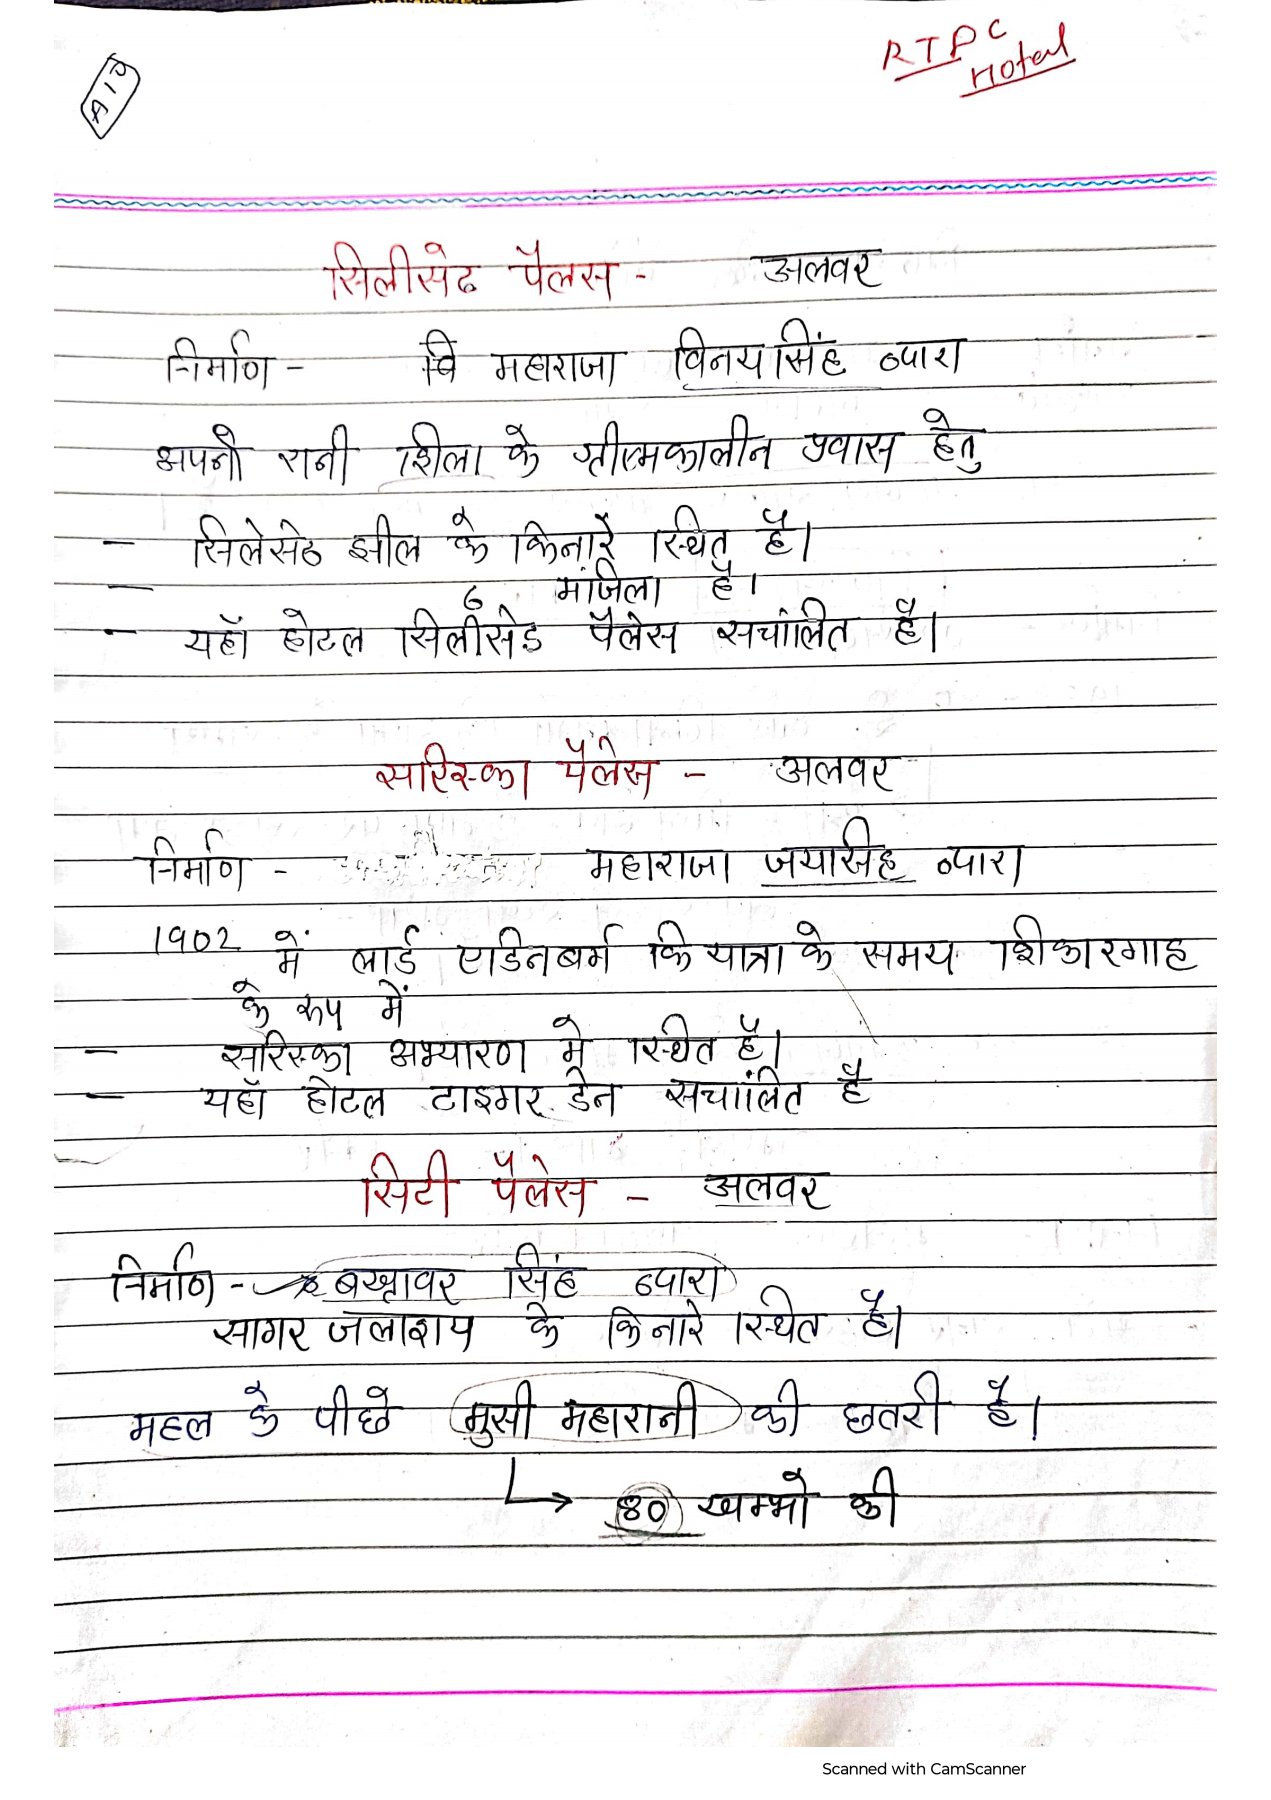 RTDC
Hotel
सिलीसेढ पैलस - अलवर
निर्माण - वि महाराजा विनयसिंह व्दारा
अपनी रानी शिला के ग्रीष्मकालीन प्रवास हेतु
- सिलेसेठ झील के किनारे स्थित है।
- 6 मंजिला है।
- यहाँ होटल सिलीसेड पैलेस सचांलित है।
सारिस्का पैलेस - अलवर
निर्माण - महाराजा जयसिंह व्दारा
1902 में लार्ड एडिनबर्ग कि यात्रा के समय शिकारगाह
के रूप में
- सरिस्का अभ्यारण में स्थित है।
- यहाँ होटल टाइगर डेन सचांलित है
सिटी पैलेस - अलवर
निर्माण - बख्तावर सिंह व्दारा
सागर जलाशय के किनारे स्थित है।
महल के पीछे मुसी महारानी की छतरी है।
80 खम्भो की
Scanned with CamScanner